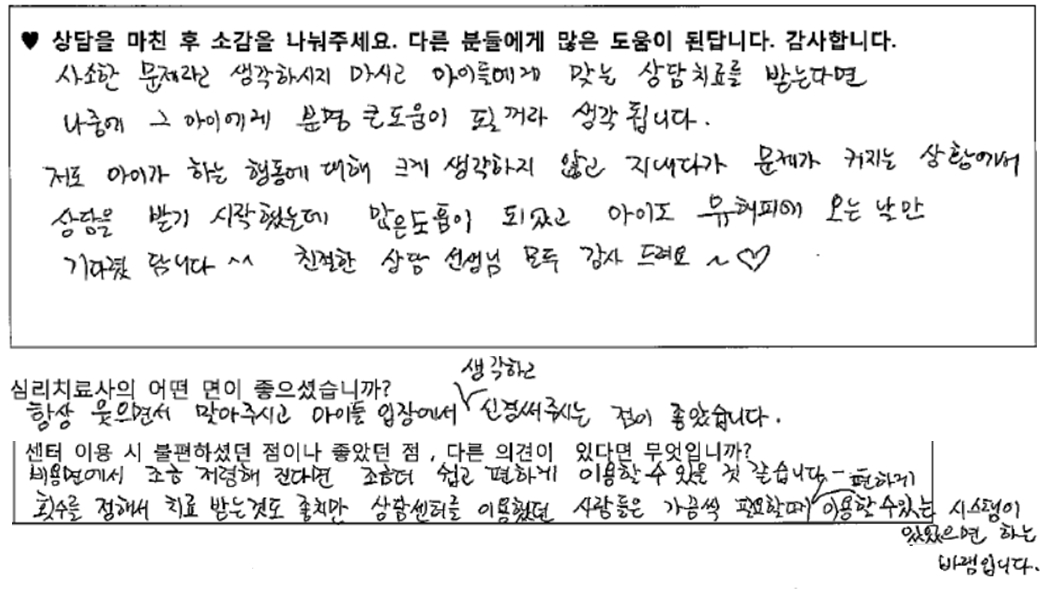 ♥ 상담을 마친 후 소감을 나눠주세요. 다른 분들에게 많은 도움이 된답니다. 감사합니다.
사소한 문제라고 생각하시지 마시고 아이들에게 맞는 상담치료를 받는다면
나중에 그 아이에게 분명 큰도움이 될꺼라 생각 됩니다.
저도 아이가 하는 행동에 대해 크게 생각하지 않고 지내다가 문제가 커지는 상황에서
상담을 받기 시작했는데 많은도움이 되었고 아이도 유해피에 오는 날만
기다렸 답니다 ^^ 친절한 상담 선생님 모두 감사 드려요 ~♡
심리치료사의 어떤 면이 좋으셨습니까?
항상 웃으면서 맞아주시고 아이들 입장에서 생각하고 신경써주시는 점이 좋았습니다.
센터 이용 시 불편하셨던 점이나 좋았던 점, 다른 의견이 있다면 무엇입니까?
비용면에서 조금 저렴해 진다면 조금더 쉽고 편하게 이용할 수 있을 것 같습니다-
횟수를 정해서 치료 받는것도 좋치만 상담센터를 이용했던 사람들은 가끔씩 필요할때 편하게 이용할 수있는 시스템이
있었으면 하는
바램입니다.